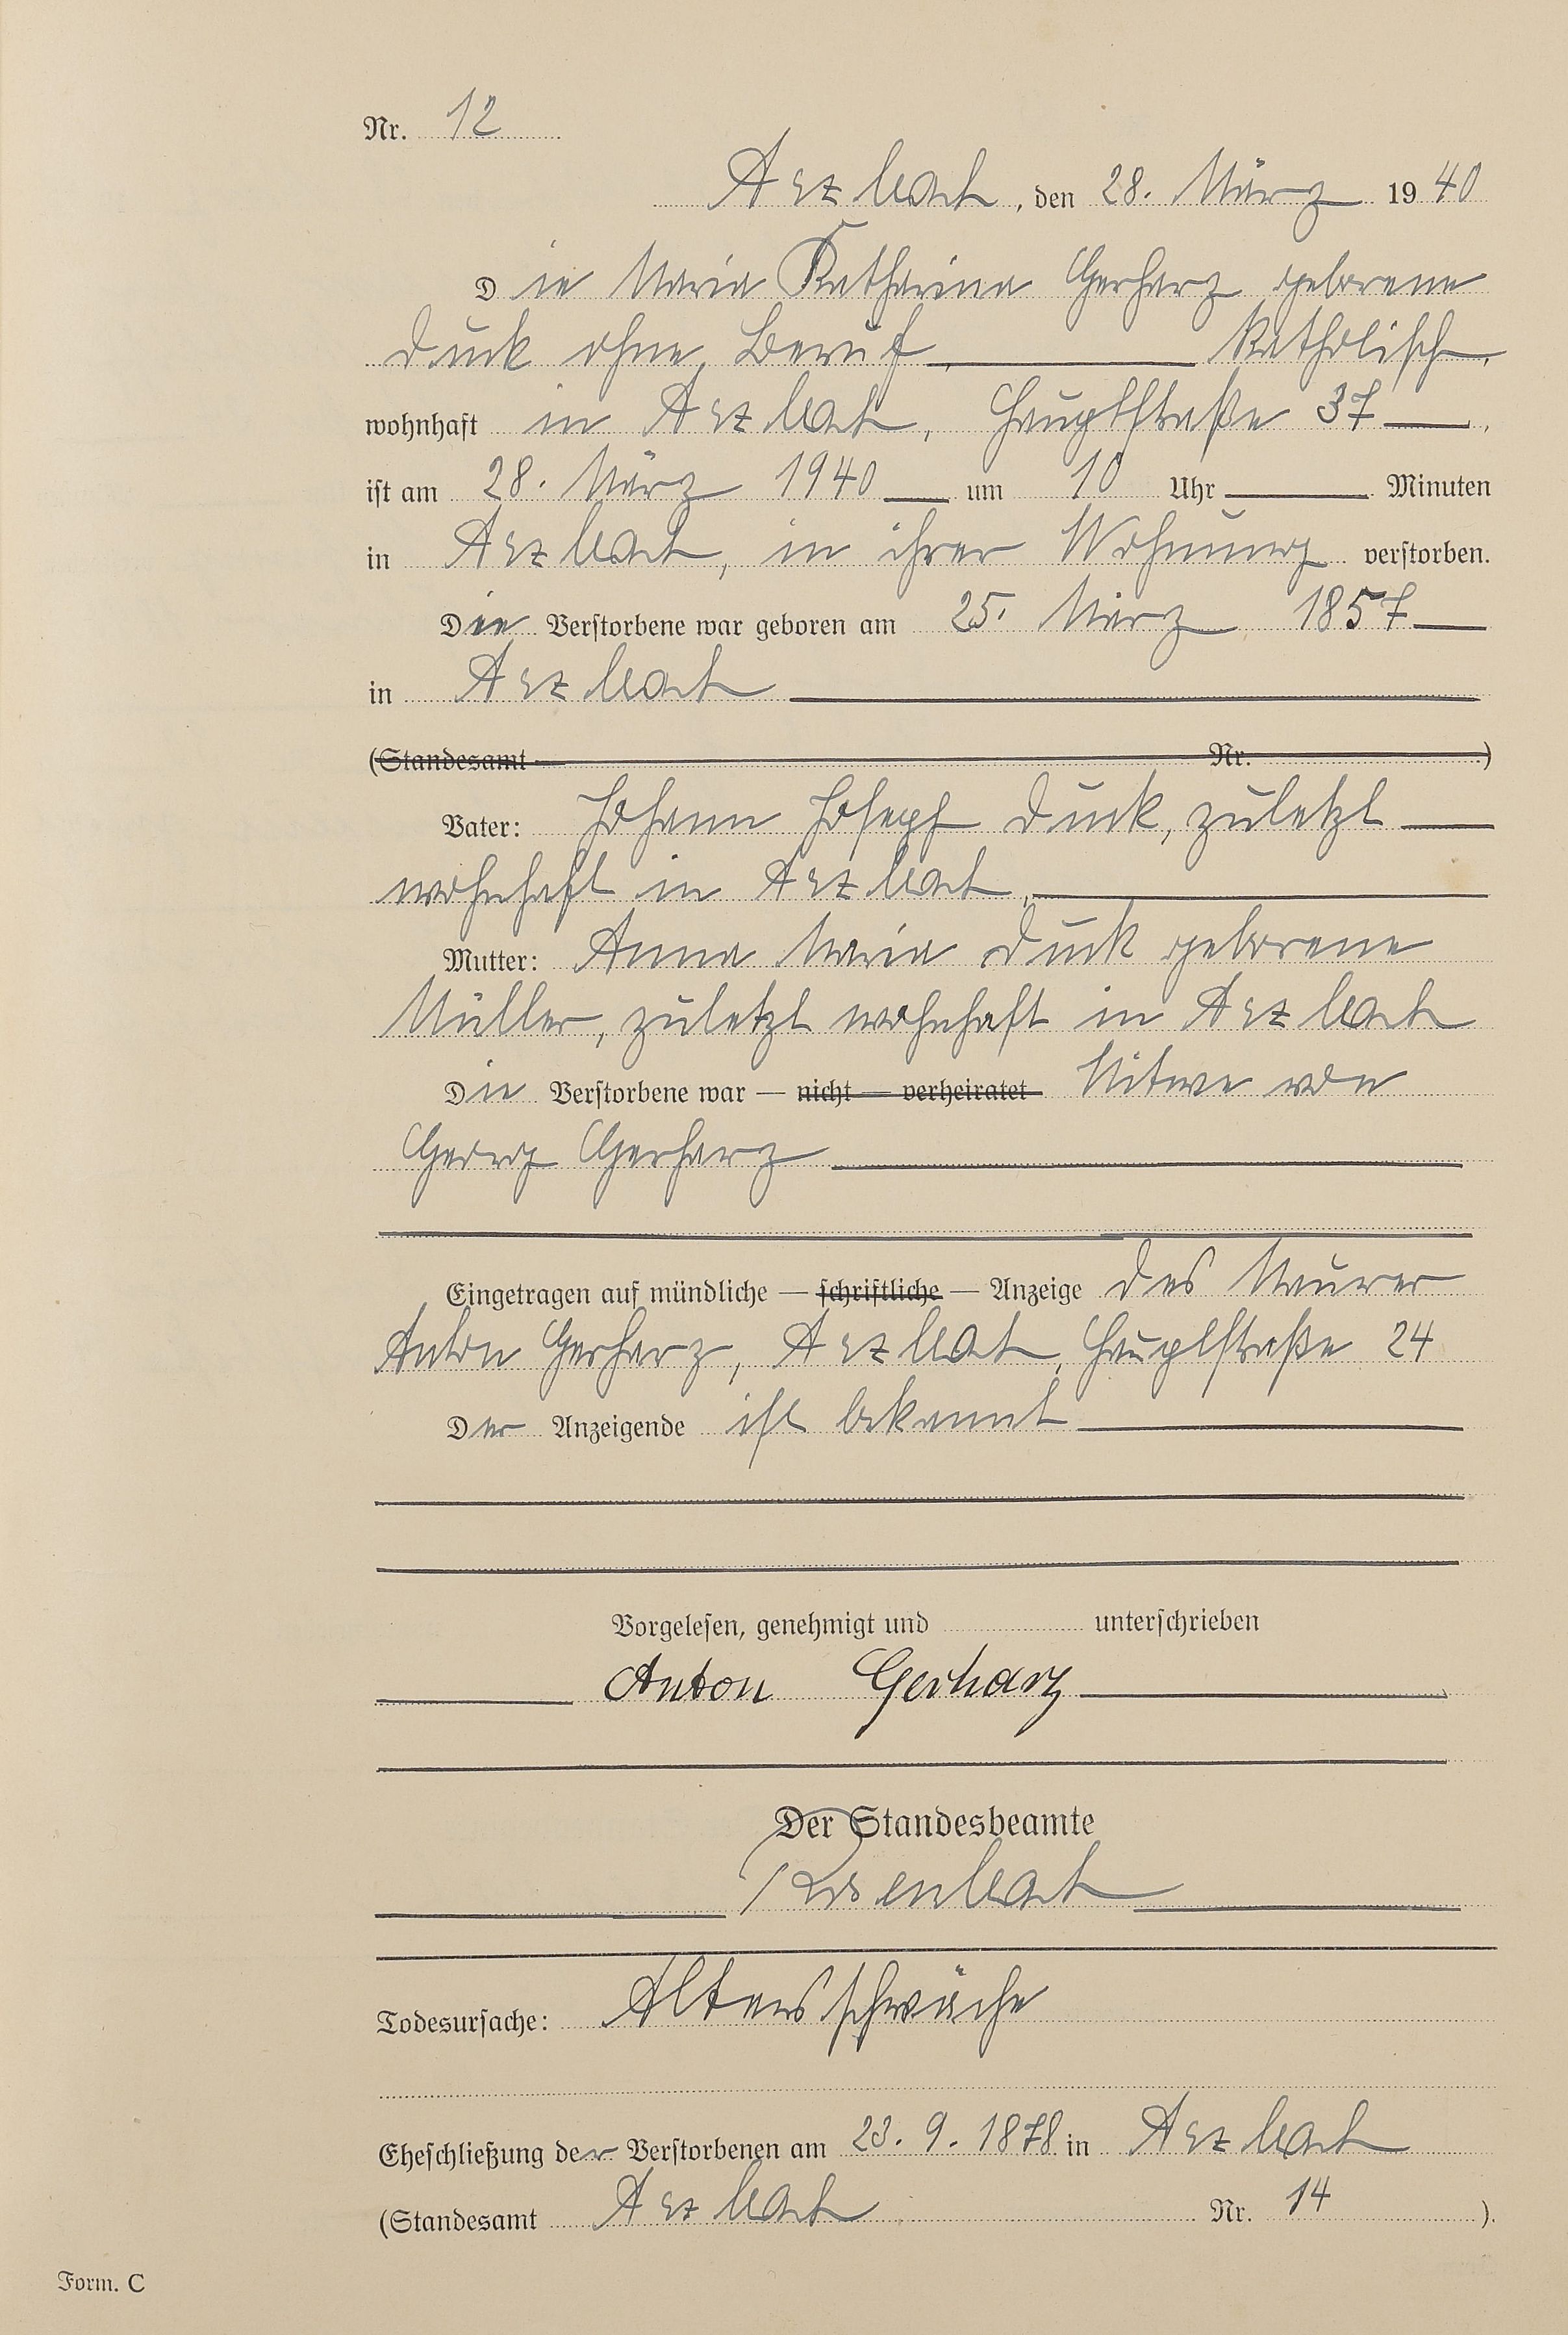 Nr. 12
Arzbach, den 28. März 1940
Die Maria Katharina Gerharz geborene
Duck ohne Beruf, katholisch,
wohnhaft in Arzbach, Hauptstraße 37,
ist am 28. März 1940 um 10 Uhr Minuten
in Arzbach, in ihrer Wohnung verstorben.
Die Verstorbene war geboren am 25. März 1857
in Arzbach
(Standesamt Nr. )
Vater: Johann Joseph Duck, zuletzt
wohnhaft in Arzbach,
Mutter: Anna Maria Duck geborene
Müller, zuletzt wohnhaft in Arzbach
Die Verstorbene war — nicht — verheiratet Witwe von
Georg Gerharz
Eingetragen auf mündliche — schriftliche — Anzeige des Maurer
Anton Gerharz, Arzbach, Hauptstraße 24
Der Anzeigende ist bekannt
Vorgelesen, genehmigt und unterschrieben
Anton Gerharz
Der Standesbeamte
Rosenbach
Todesursache: Altersschwäche
Eheschließung der Verstorbenen am 23. 9. 1878 in Arzbach
(Standesamt Arzbach Nr. 14 ).
Form. C